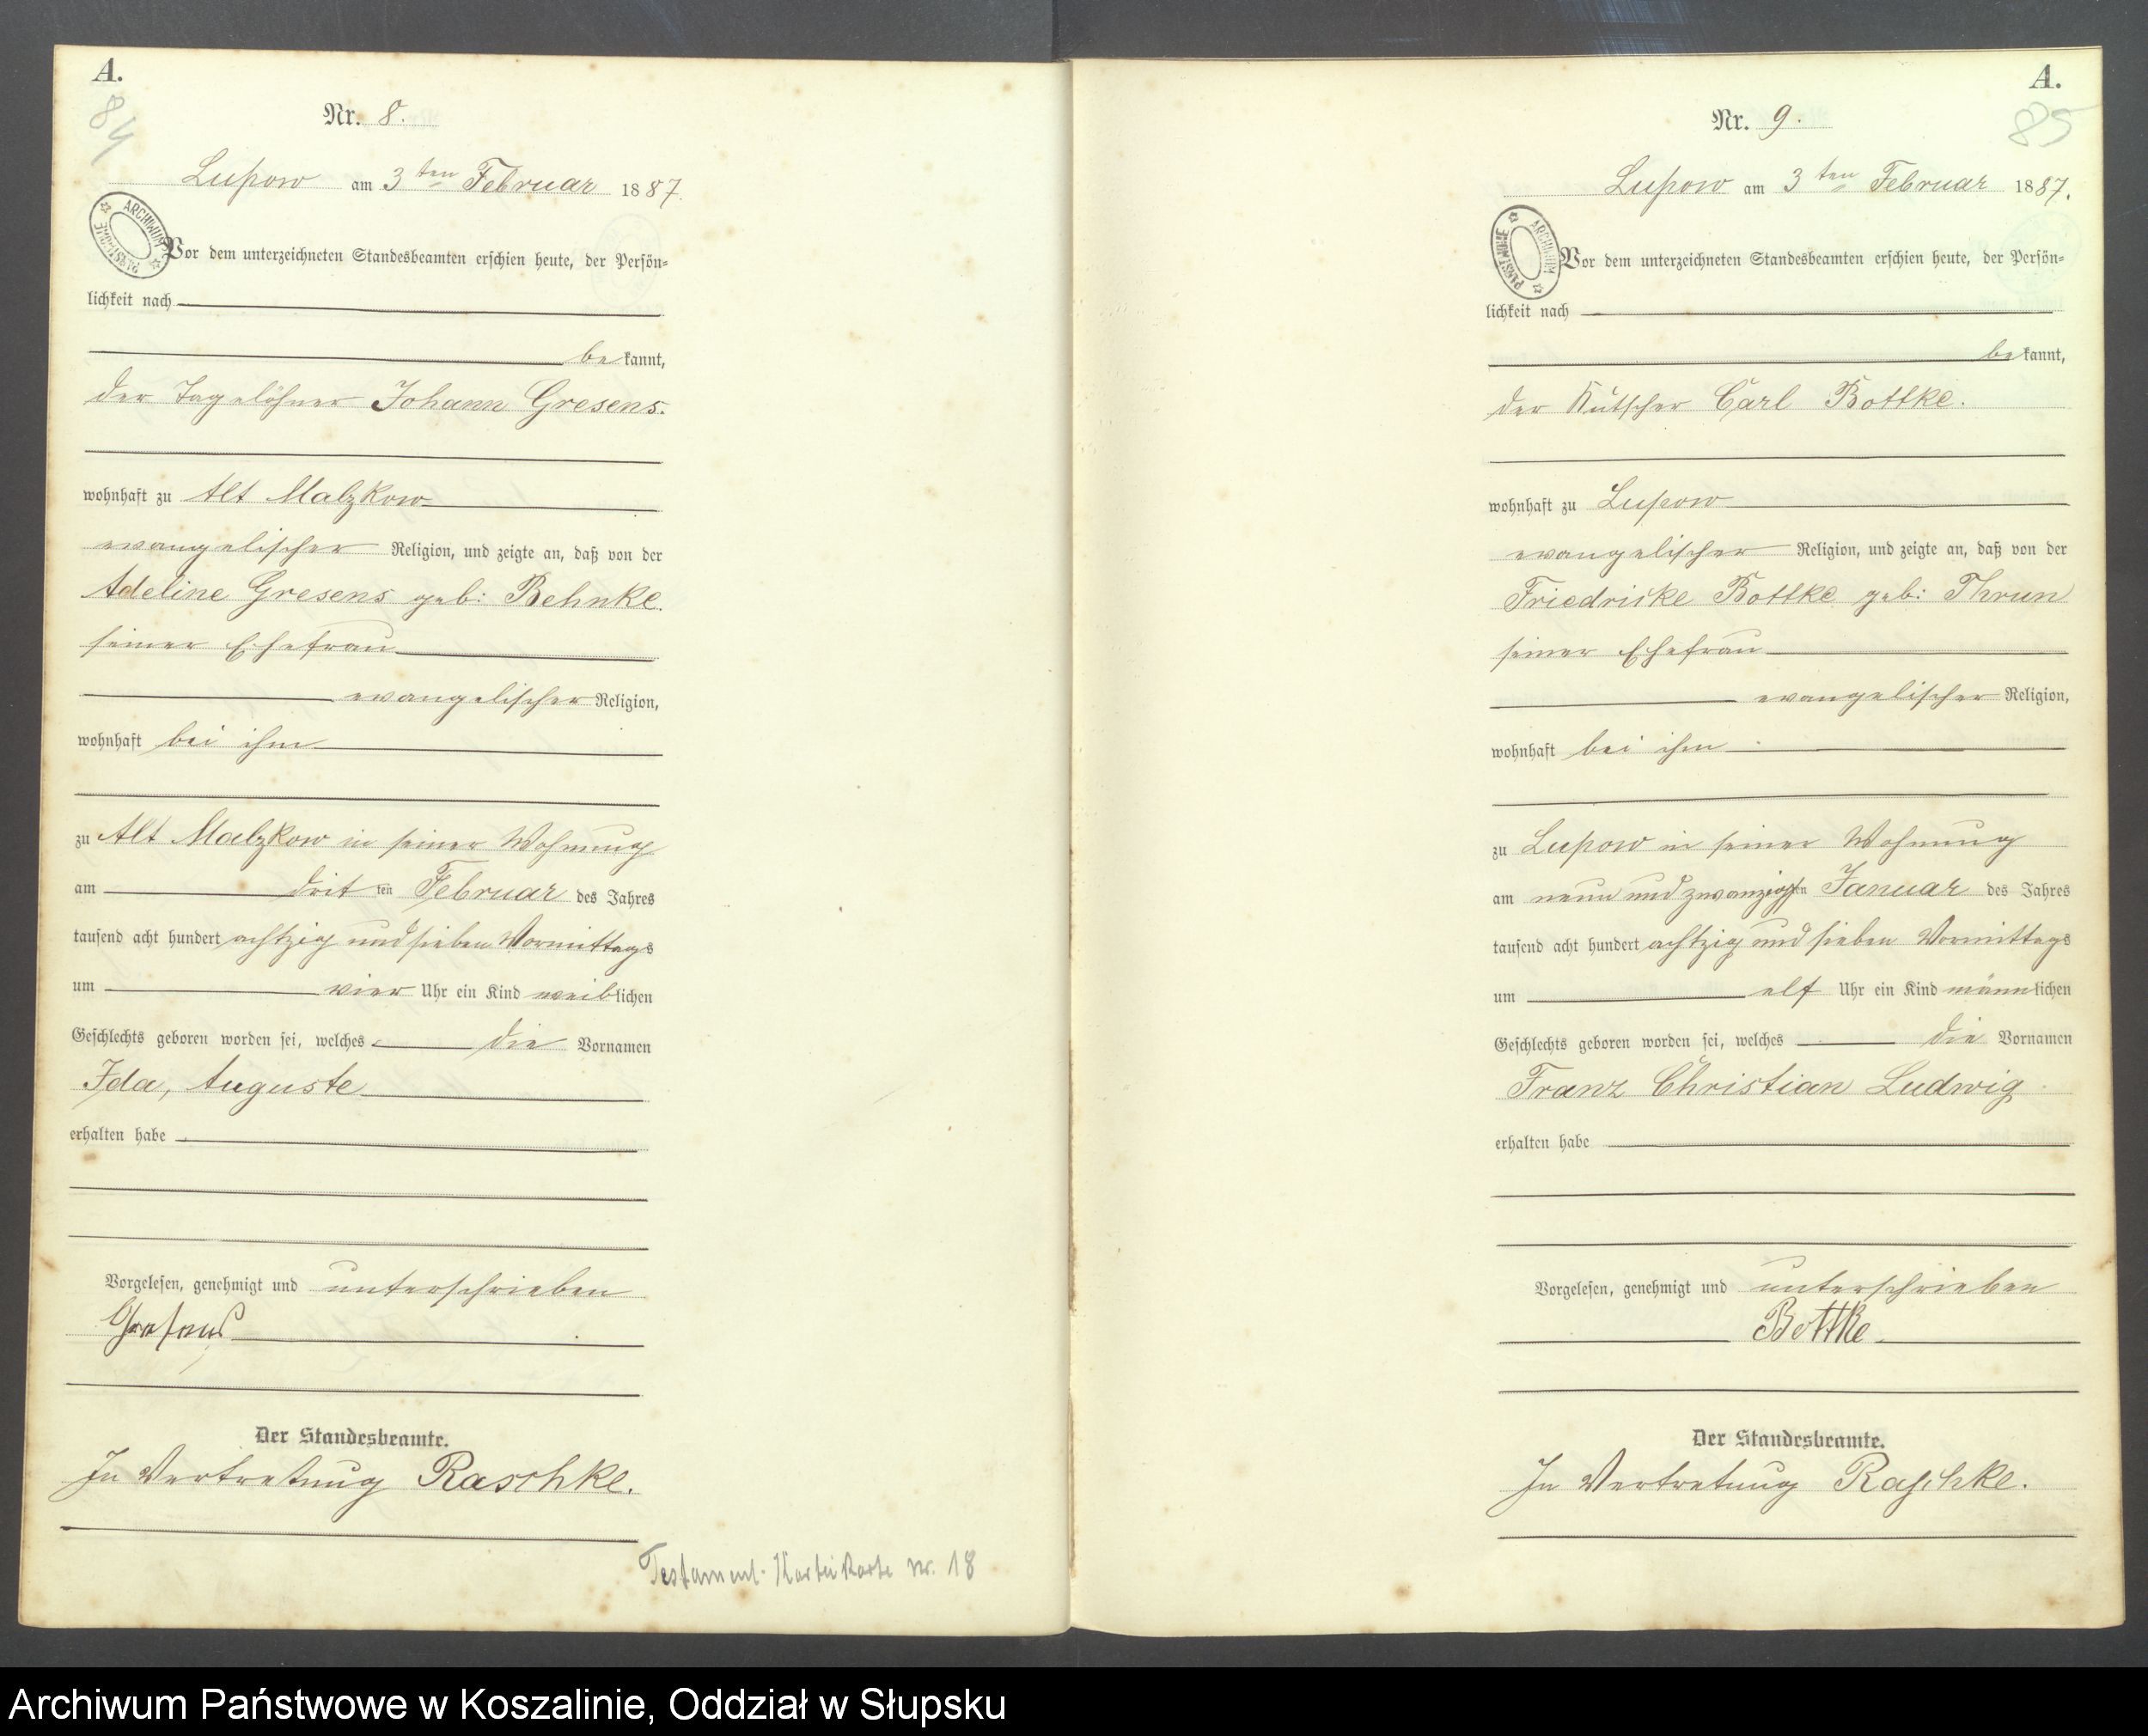 A.
84
Nr. 8.
Lupow am 3ten Februar 1887.
ARCHIWUM PAŃSTWOWE
Vor dem unterzeichneten Standesbeamten erschien heute, der Persön=
lichkeit nach
bekannt,
der Tagelöhner Johann Gresens.
wohnhaft zu Alt Malzkow
evangelischer Religion, und zeigte an, daß von der
Adeline Gresens geb: Behnke.
seiner Ehefrau
evangelischer Religion,
wohnhaft bei ihm
zu Alt Malzkow in seiner Wohnung
am dritten Februar des Jahres
tausend acht hundert achtzig und sieben Vormittags
um vier Uhr ein Kind weiblichen
Geschlechts geboren worden sei, welches die Vornamen
Ida, Auguste
erhalten habe
Vorgelesen, genehmigt und unterschrieben
Gresens
Der Standesbeamte.
In Vertretung Raschke.
Testament-Karteikarte nr. 18
A.
85
Nr. 9.
Lupow am 3ten Februar 1887.
ARCHIWUM PAŃSTWOWE
Vor dem unterzeichneten Standesbeamten erschien heute, der Persön=
lichkeit nach
bekannt,
der Kutscher Carl Bottke.
wohnhaft zu Lupow
evangelischer Religion, und zeigte an, daß von der
Friedricke Bottke geb: Thrun
seiner Ehefrau
evangelischer Religion,
wohnhaft bei ihm
zu Lupow in seiner Wohnung
am neun und zwanzigsten Januar des Jahres
tausend acht hundert achtzig und sieben Vormittags
um elf Uhr ein Kind männlichen
Geschlechts geboren worden sei, welches die Vornamen
Franz Christian Ludwig
erhalten habe
Vorgelesen, genehmigt und unterschrieben
Bottke
Der Standesbeamte.
In Vertretung Raschke.
Archiwum Państwowe w Koszalinie, Oddział w Słupsku